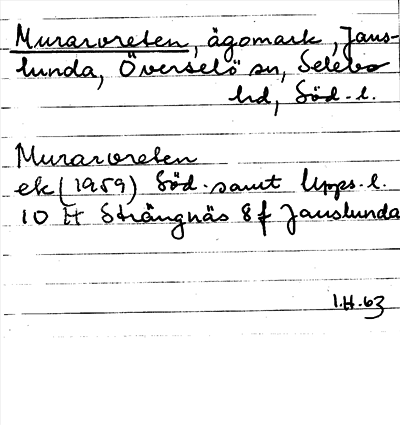 Murarvreten, ägomark, Jans-
lunda, Överselö sn, Selebo
hd, Söd. l.
Murarvreten
ek (1959) Söd. samt Upps. l.
10 H Strängnäs 8 f Janslunda
I.H. 63